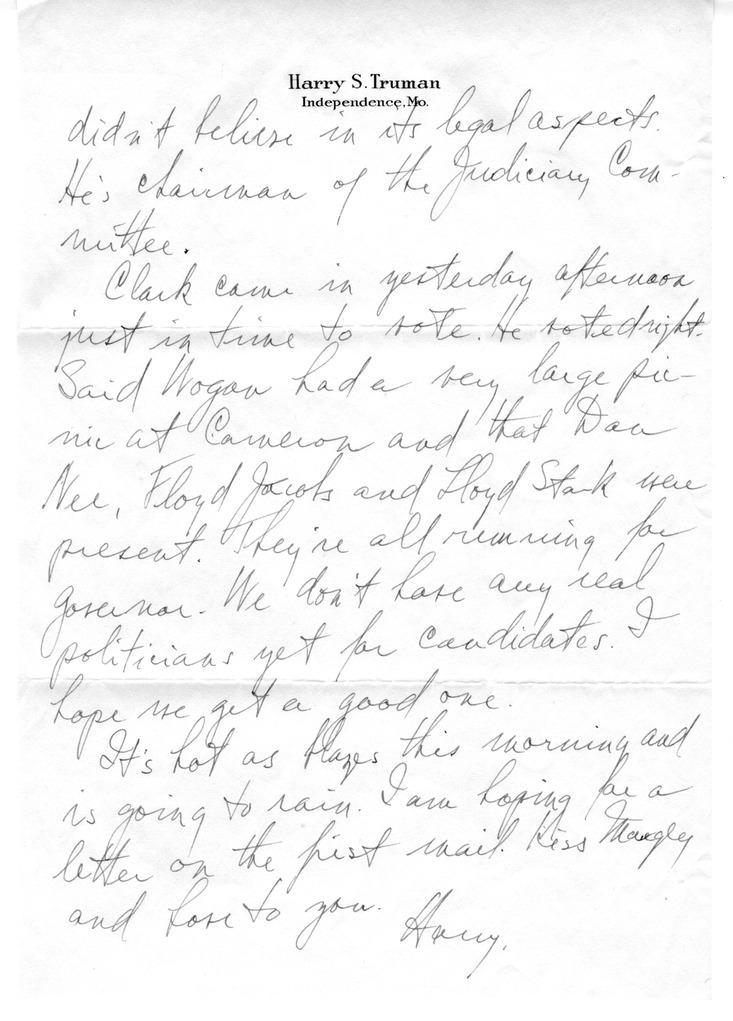 Harry S. Truman
Independence, Mo.
didn't believe in its legal aspects.
He's chairman of the Judiciary Com-
mittee.
Clark came in yesterday afternoon
just in time to vote. He voted right.
Said Wogan had a very large pic-
nic at Cameron and that Dan
Nee, Floyd Jacobs and Lloyd Stark were
present. They're all running for
governor. We don't have any real
politicians yet for candidates. I
hope we get a good one.
It's hot as blazes this morning and
is going to rain. I am hoping for a
letter on the first mail. Kiss Margey
and love to you.
Harry.